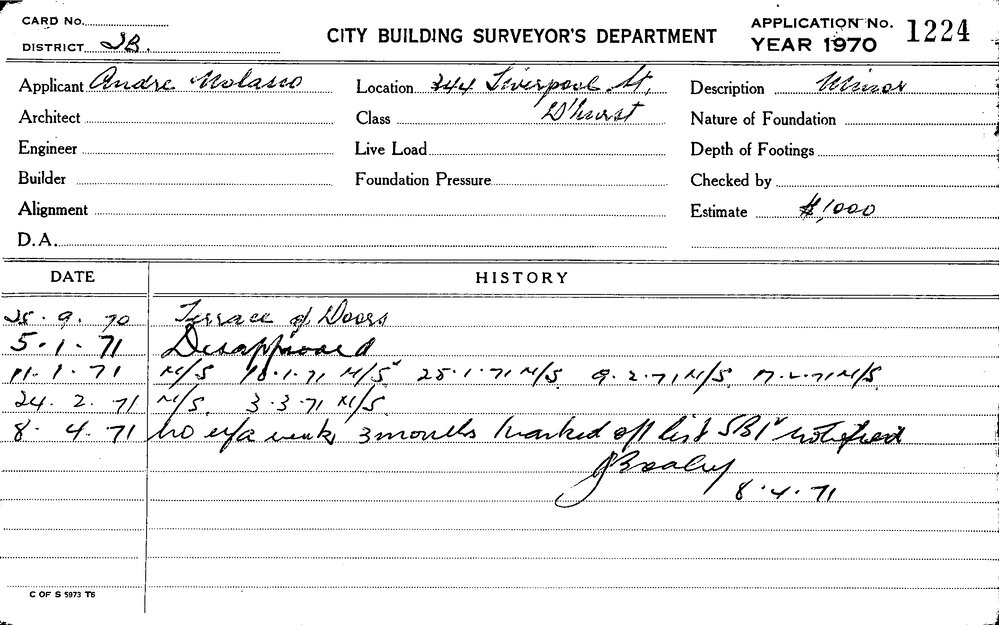 CARD No.
DISTRICT 2B.
CITY BUILDING SURVEYOR'S DEPARTMENT
APPLICATION No. 1224
YEAR 1970
Applicant Andre Molasco
Location 344 Liverpool St,
Description Minor
Architect
Class D'hurst
Nature of Foundation
Engineer
Live Load
Depth of Footings
Builder
Foundation Pressure
Checked by
Alignment
Estimate $1,000
D.A.
DATE HISTORY
25. 9. 70 Terrace & Doors
5.1.71 Disapproved
11.1.71 N/S 18.1.71 N/S 25.1.71 N/S 9.2.71 N/S 17.2.71 N/S
24. 2. 71 N/S. 3.3.71 N/S
8. 4. 71 no work 3 months marked off list SBI notified
8.4.71
C OF S 5973 T6